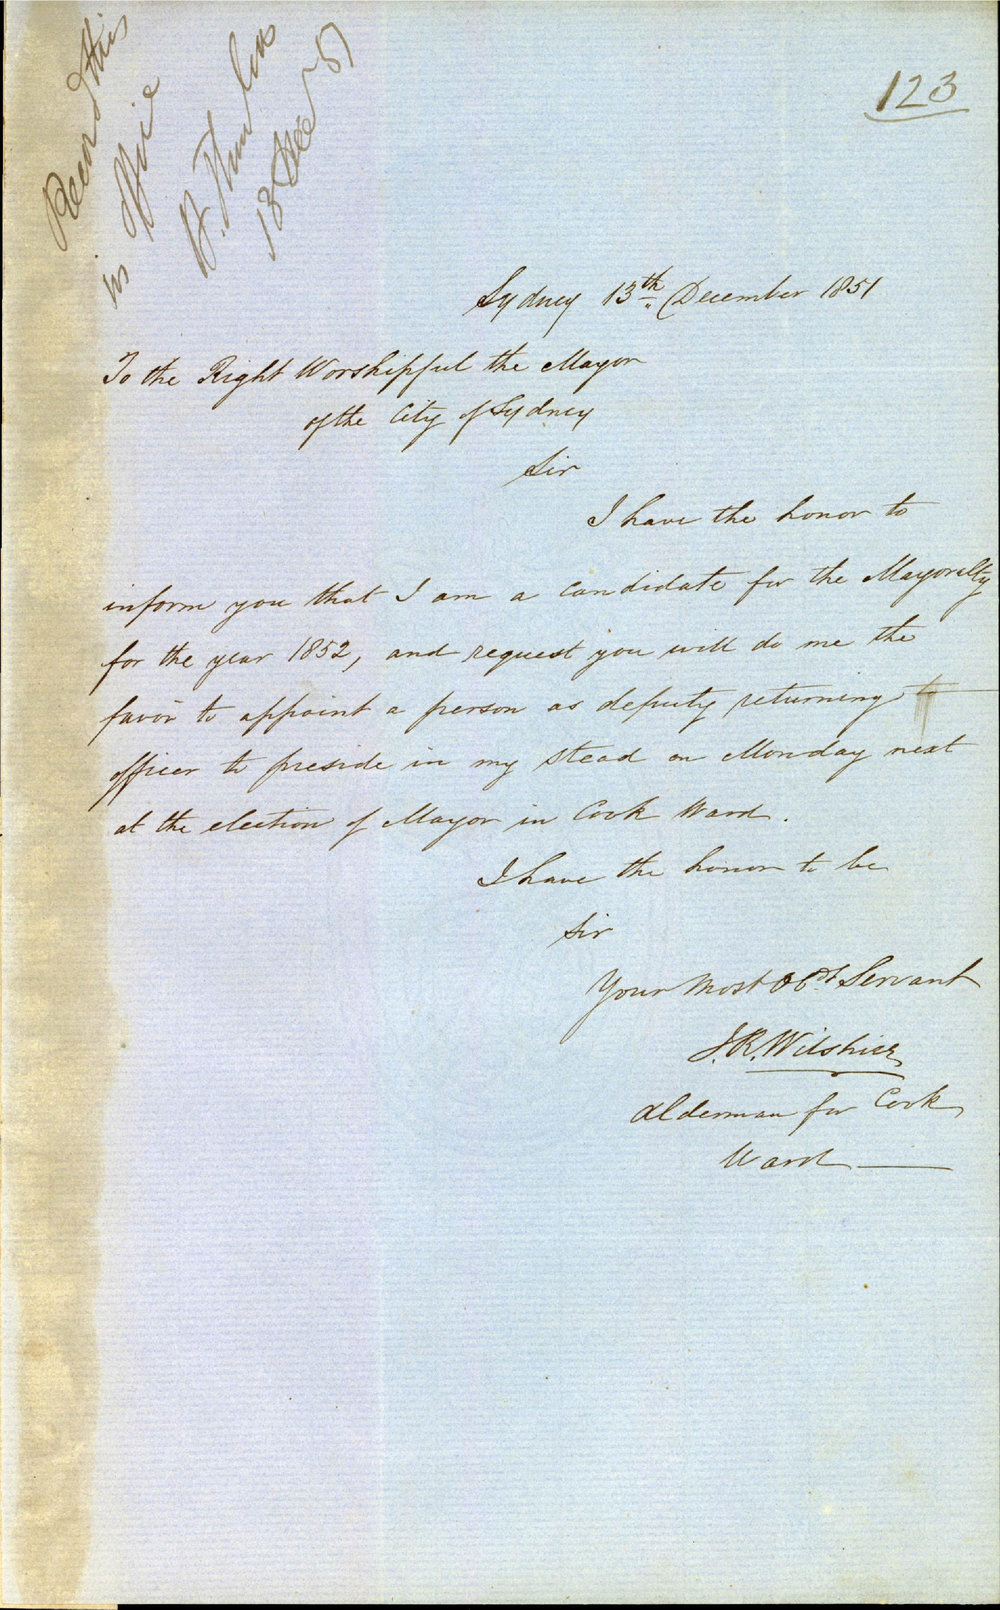 Record this
in Office
W. Thurlow
13 Dec 51
123
Sydney 13th December 1851
To the Right Worshipful the Mayor
of the City of Sydney
Sir
I have the honor to
inform you that I am a candidate for the Mayorilty
for the year 1852, and request you will do me the
favor to appoint a person as deputy returning
officer to preside in my stead on Monday next
at the election of Mayor in Cook Ward.
I have the honor to be
Sir
Your most Obdt Servant
J. R. Wilshire
Alderman for Cook
Ward